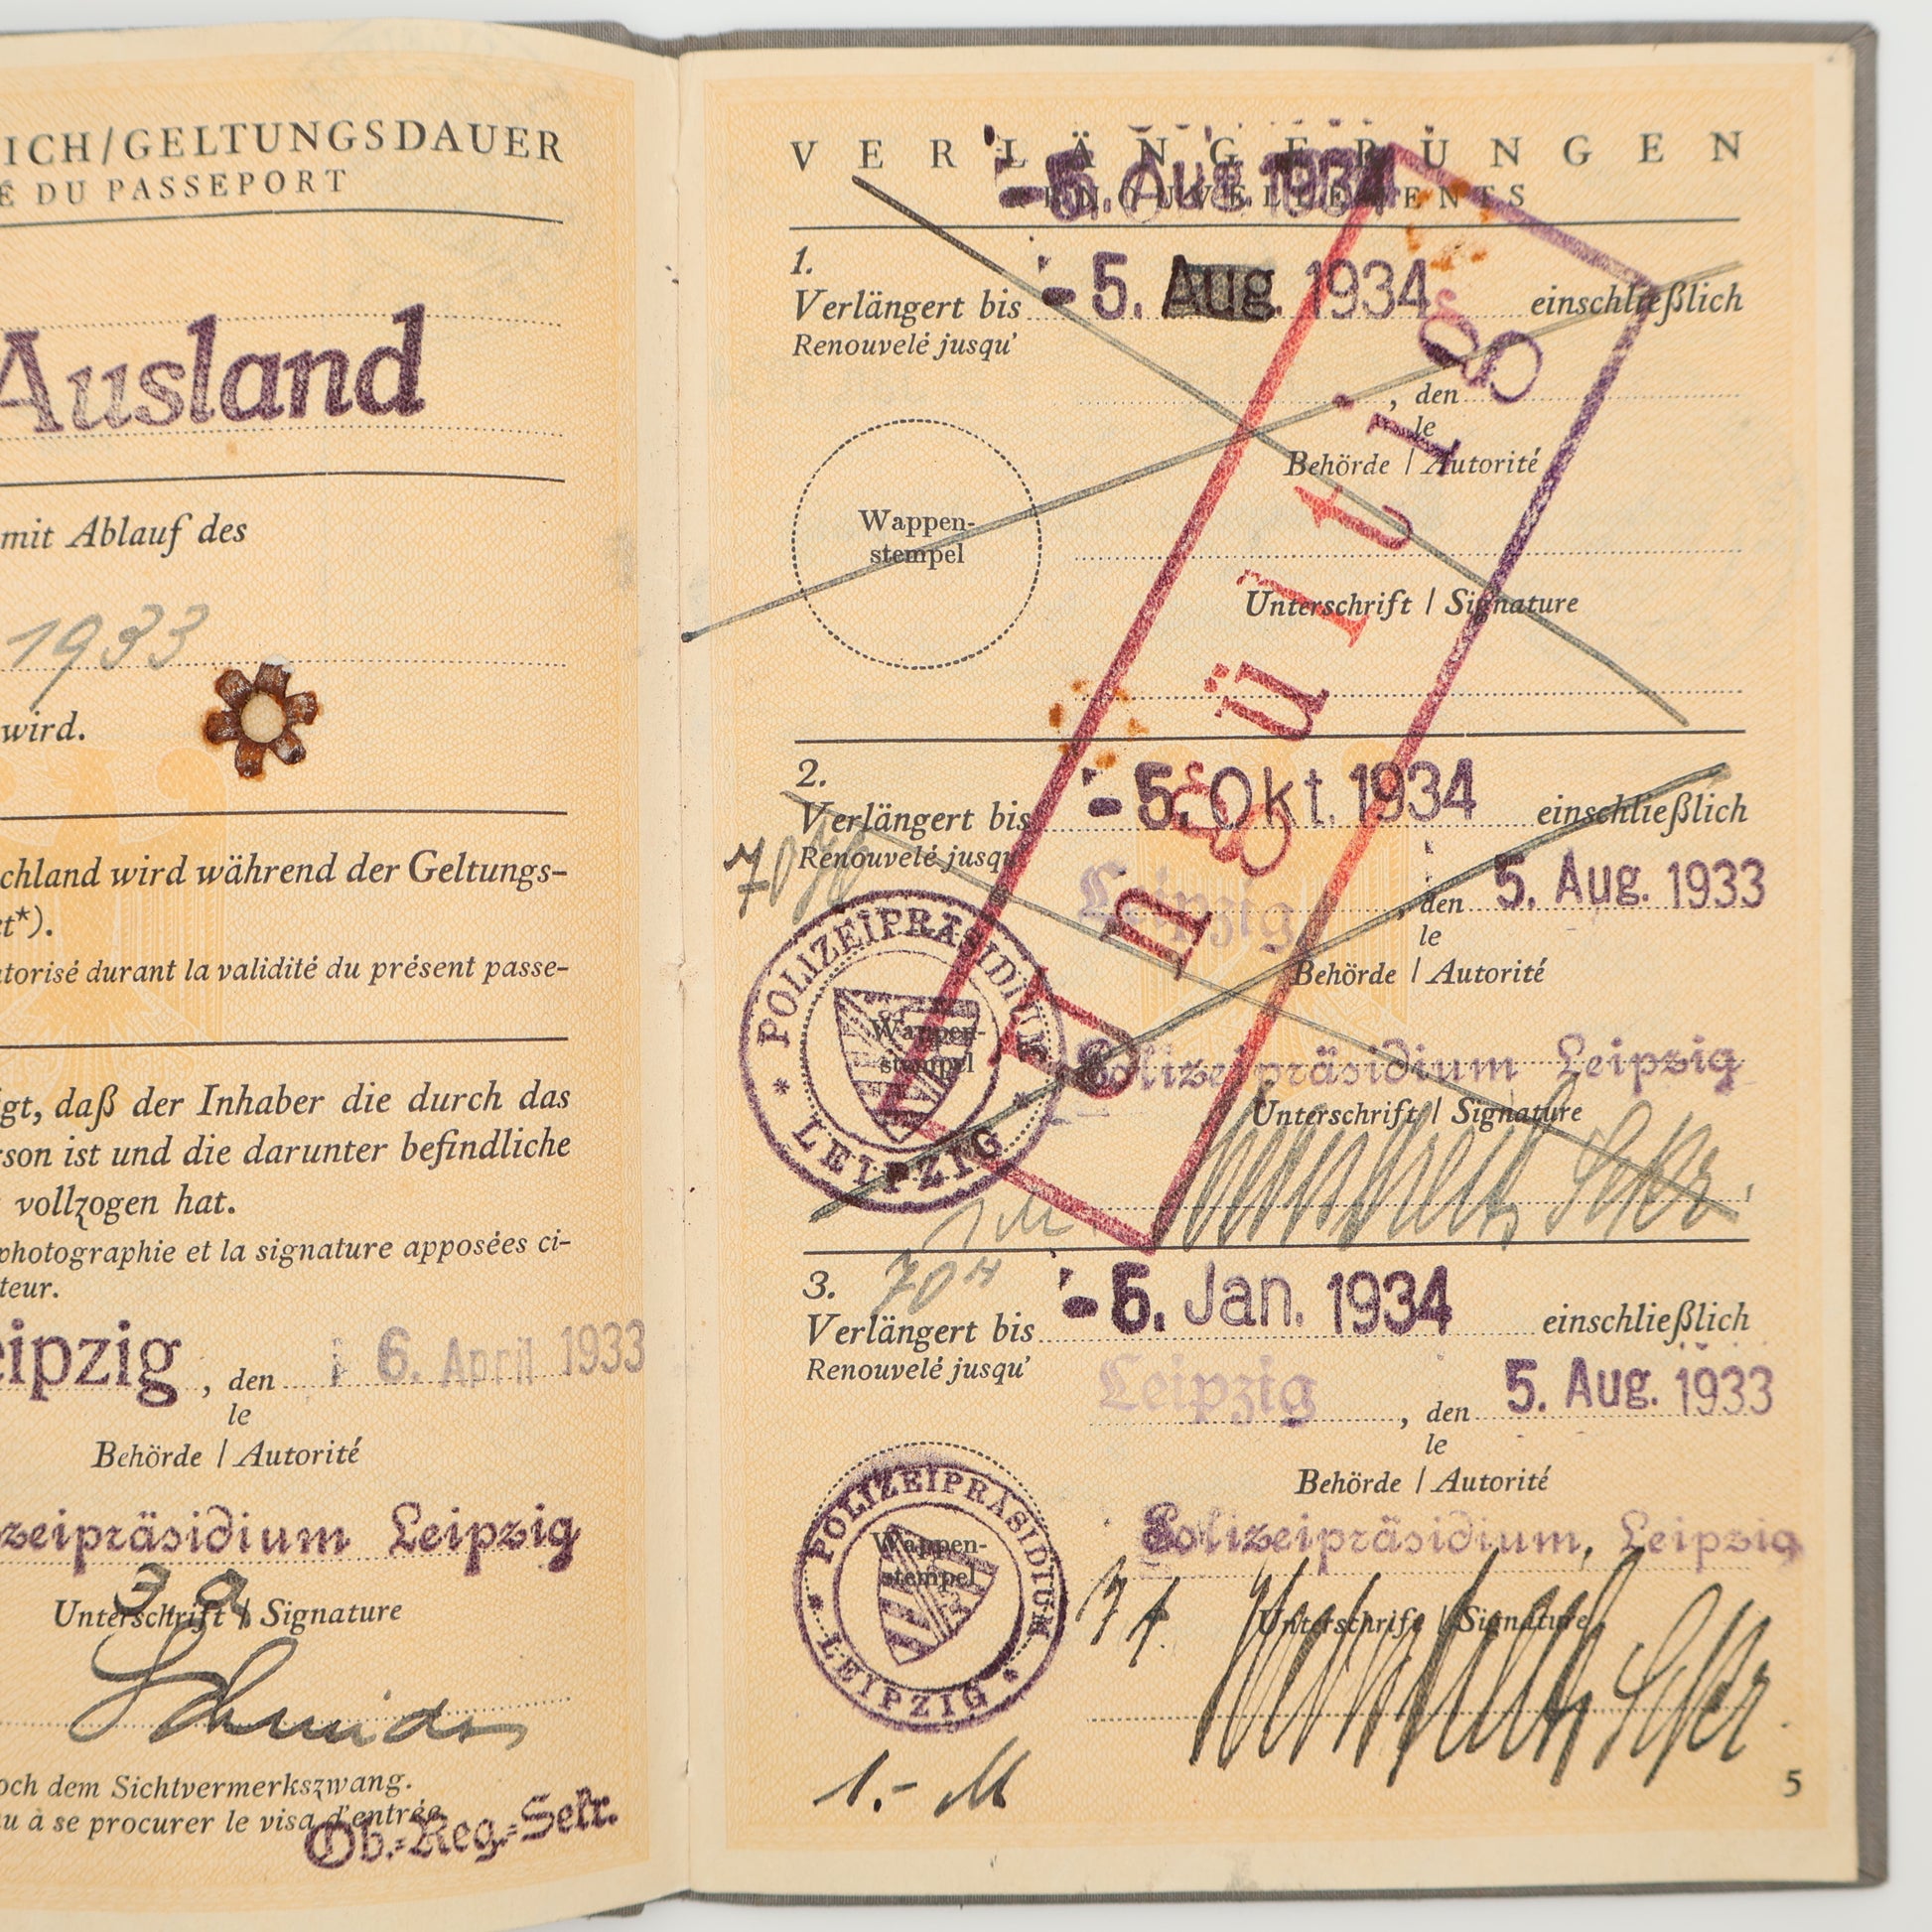 ICH/GELTUNGSDAUER
É DU PASSEPORT
Ausland
mit Ablauf des
1933
wird.
chland wird während der Geltungs-
t*).
torisé durant la validité du présent passe-
gt, daß der Inhaber die durch das
son ist und die darunter befindliche
vollzogen hat.
photographie et la signature apposées ci-
teur.
eipzig, den 6. April 1933
le
Behörde | Autorité
zeipräsidium Leipzig
Unterschrift | Signature
Schmidt
och dem Sichtvermerkszwang.
u à se procurer le visa d'entrée
Ob.-Reg.-Sekr.
VERLÄNGERUNGEN
RENOUVELLEMENTS
-5. Aug. 1934
1.
Verlängert bis - 5. Aug. 1934 einschließlich
Renouvelé jusqu'
, den
le
Behörde | Autorité
Wappen-
stempel
Unterschrift | Signature
Ungültig
2.
Verlängert bis - 5. Okt. 1934 einschließlich
Renouvelé jusqu'
Leipzig, den 5. Aug. 1933
le
Behörde | Autorité
POLIZEIPRÄSIDIUM
LEIPZIG
Wappen-
stempel
Polizeipräsidium Leipzig
Unterschrift | Signature
3.
Verlängert bis - 6. Jan. 1934 einschließlich
Renouvelé jusqu'
Leipzig, den 5. Aug. 1933
le
Behörde | Autorité
POLIZEIPRÄSIDIUM
LEIPZIG
Wappen-
stempel
Polizeipräsidium, Leipzig
Unterschrift | Signature
1.- M
5